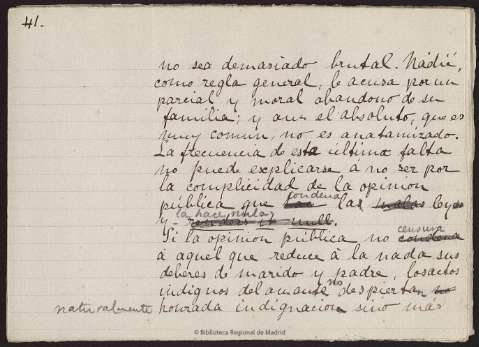 41.
no sea demasiado brutal. Nadie,
como regla general, le acusa por un
parcial y moral abandono de su
familia; y aun el absoluto, que es
muy comun, no es anatamizado.
La frecuencia de esta ultima falta
no puede explicarse á no ser por
la complicidad de la opinion
condena
pública que las malas leyes
la hace nula
y
Si la opinion pública no condena
censura
á aquel que reduce á la nada sus
deberes de marido y padre, los actos
indignos del amante no despiertan no
naturalmente honrada indignacion sino más
© Biblioteca Regional de Madrid